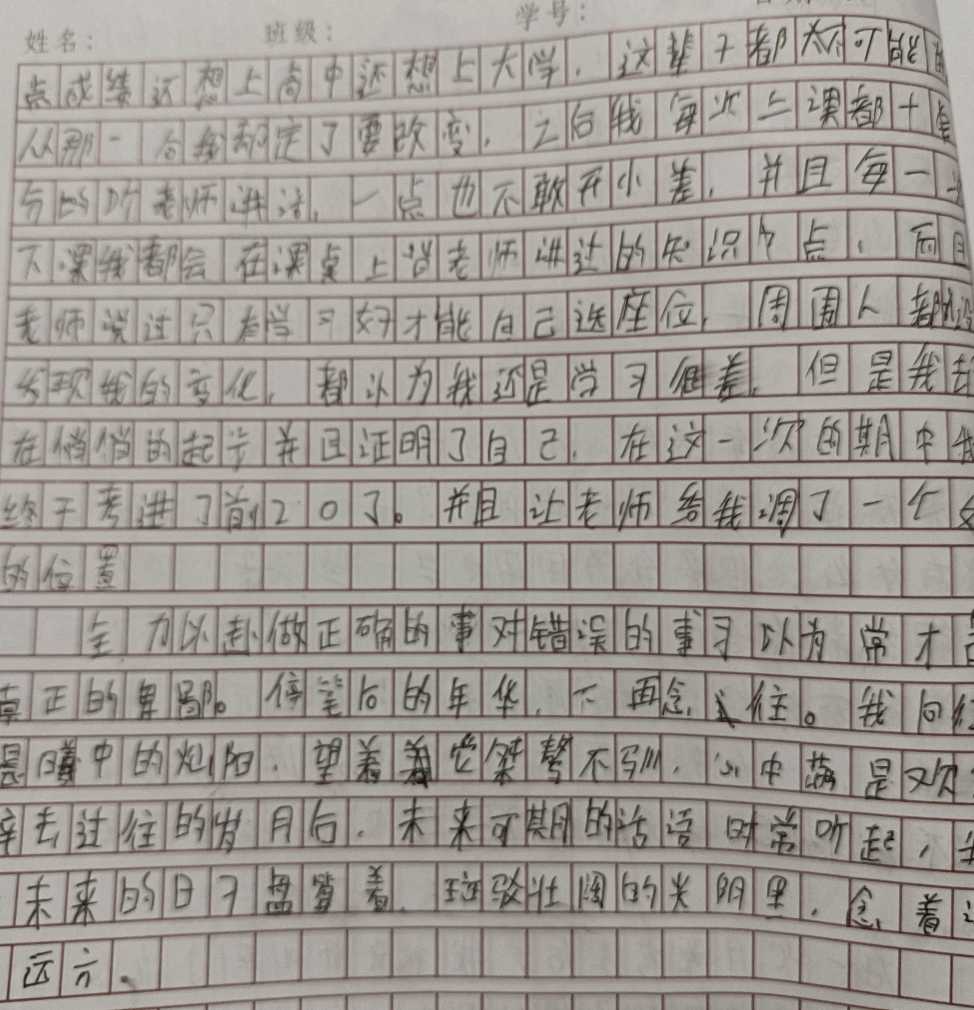 姓名： 班级： 学号：
点成绩还想上高中还想上大学，这辈子都太不可能
从那一后我都定了要改变，之后我每次上课都十
的听老师讲话，一点也不敢开小差，并且每一
下课我都会在课桌上背老师讲过的知识点，而且
老师说过只有学习好才能自己选座位，周围人都没
发现我的变化，都认为我还是学习很差，但是我
在悄悄的起步并且证明了自己，在这一次的期中我
终于考进了前20了。并且让老师给我调了一个
的位置
全力以赴做正确的事对错误的事习以为常才
真正的卑鄙。停笔后的年华，不再念过往。我向往
晨曦中的灿阳，望着着它桀骜不驯，心中满是欢
辛去过往的岁月后，未来可期的话语时常听起，
未来的日子盘算着，斑驳壮阔的光阴里，念着
远方。